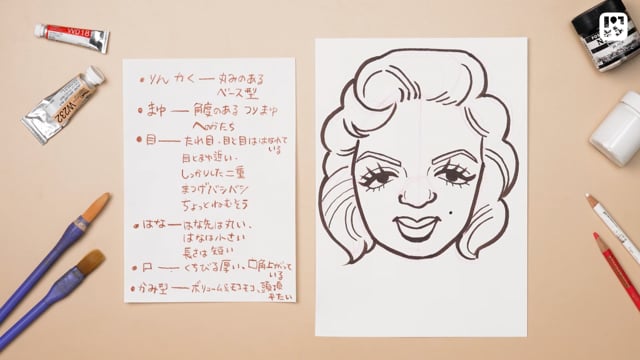 W018
W232
・りんかく ― 丸みのある
ベース型
・まゆ ― 角度のあるつりまゆ
へのかたち
・目 ― たれ目、目と目ははなれて
いる
目とまゆ近い、
しっかりした二重
まつげバシバシ
ちょっとねむそう
・はな ― はな先は丸い、
はなは小さい
長さは短い
・口 ― くちびる厚い、口角上がって
いる
・かみ型 ― ボリューム&モコモコ、頭頂
平たい